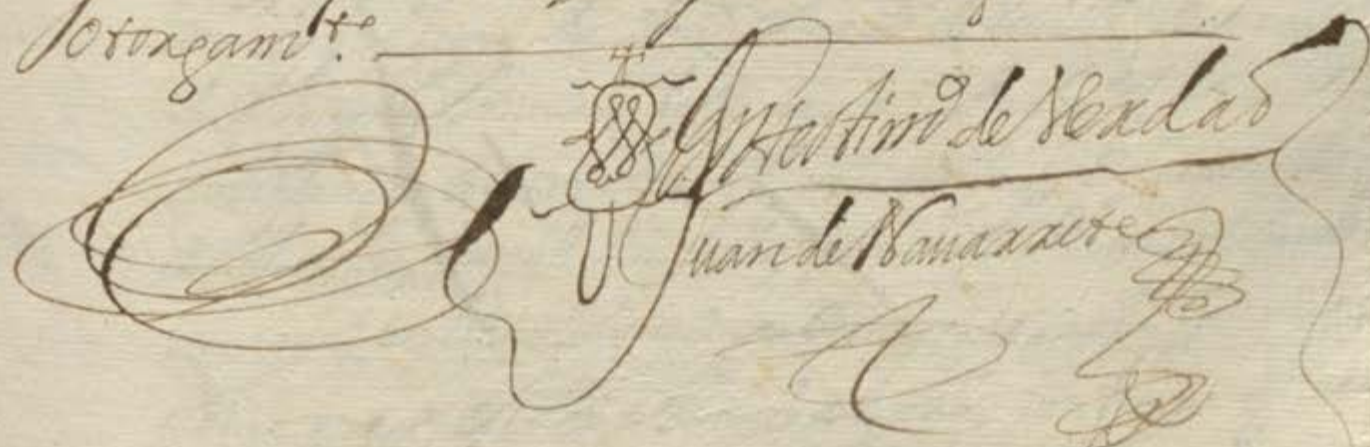 otorgam^to.
En testimo de Verdad
Juan de Nauarrete